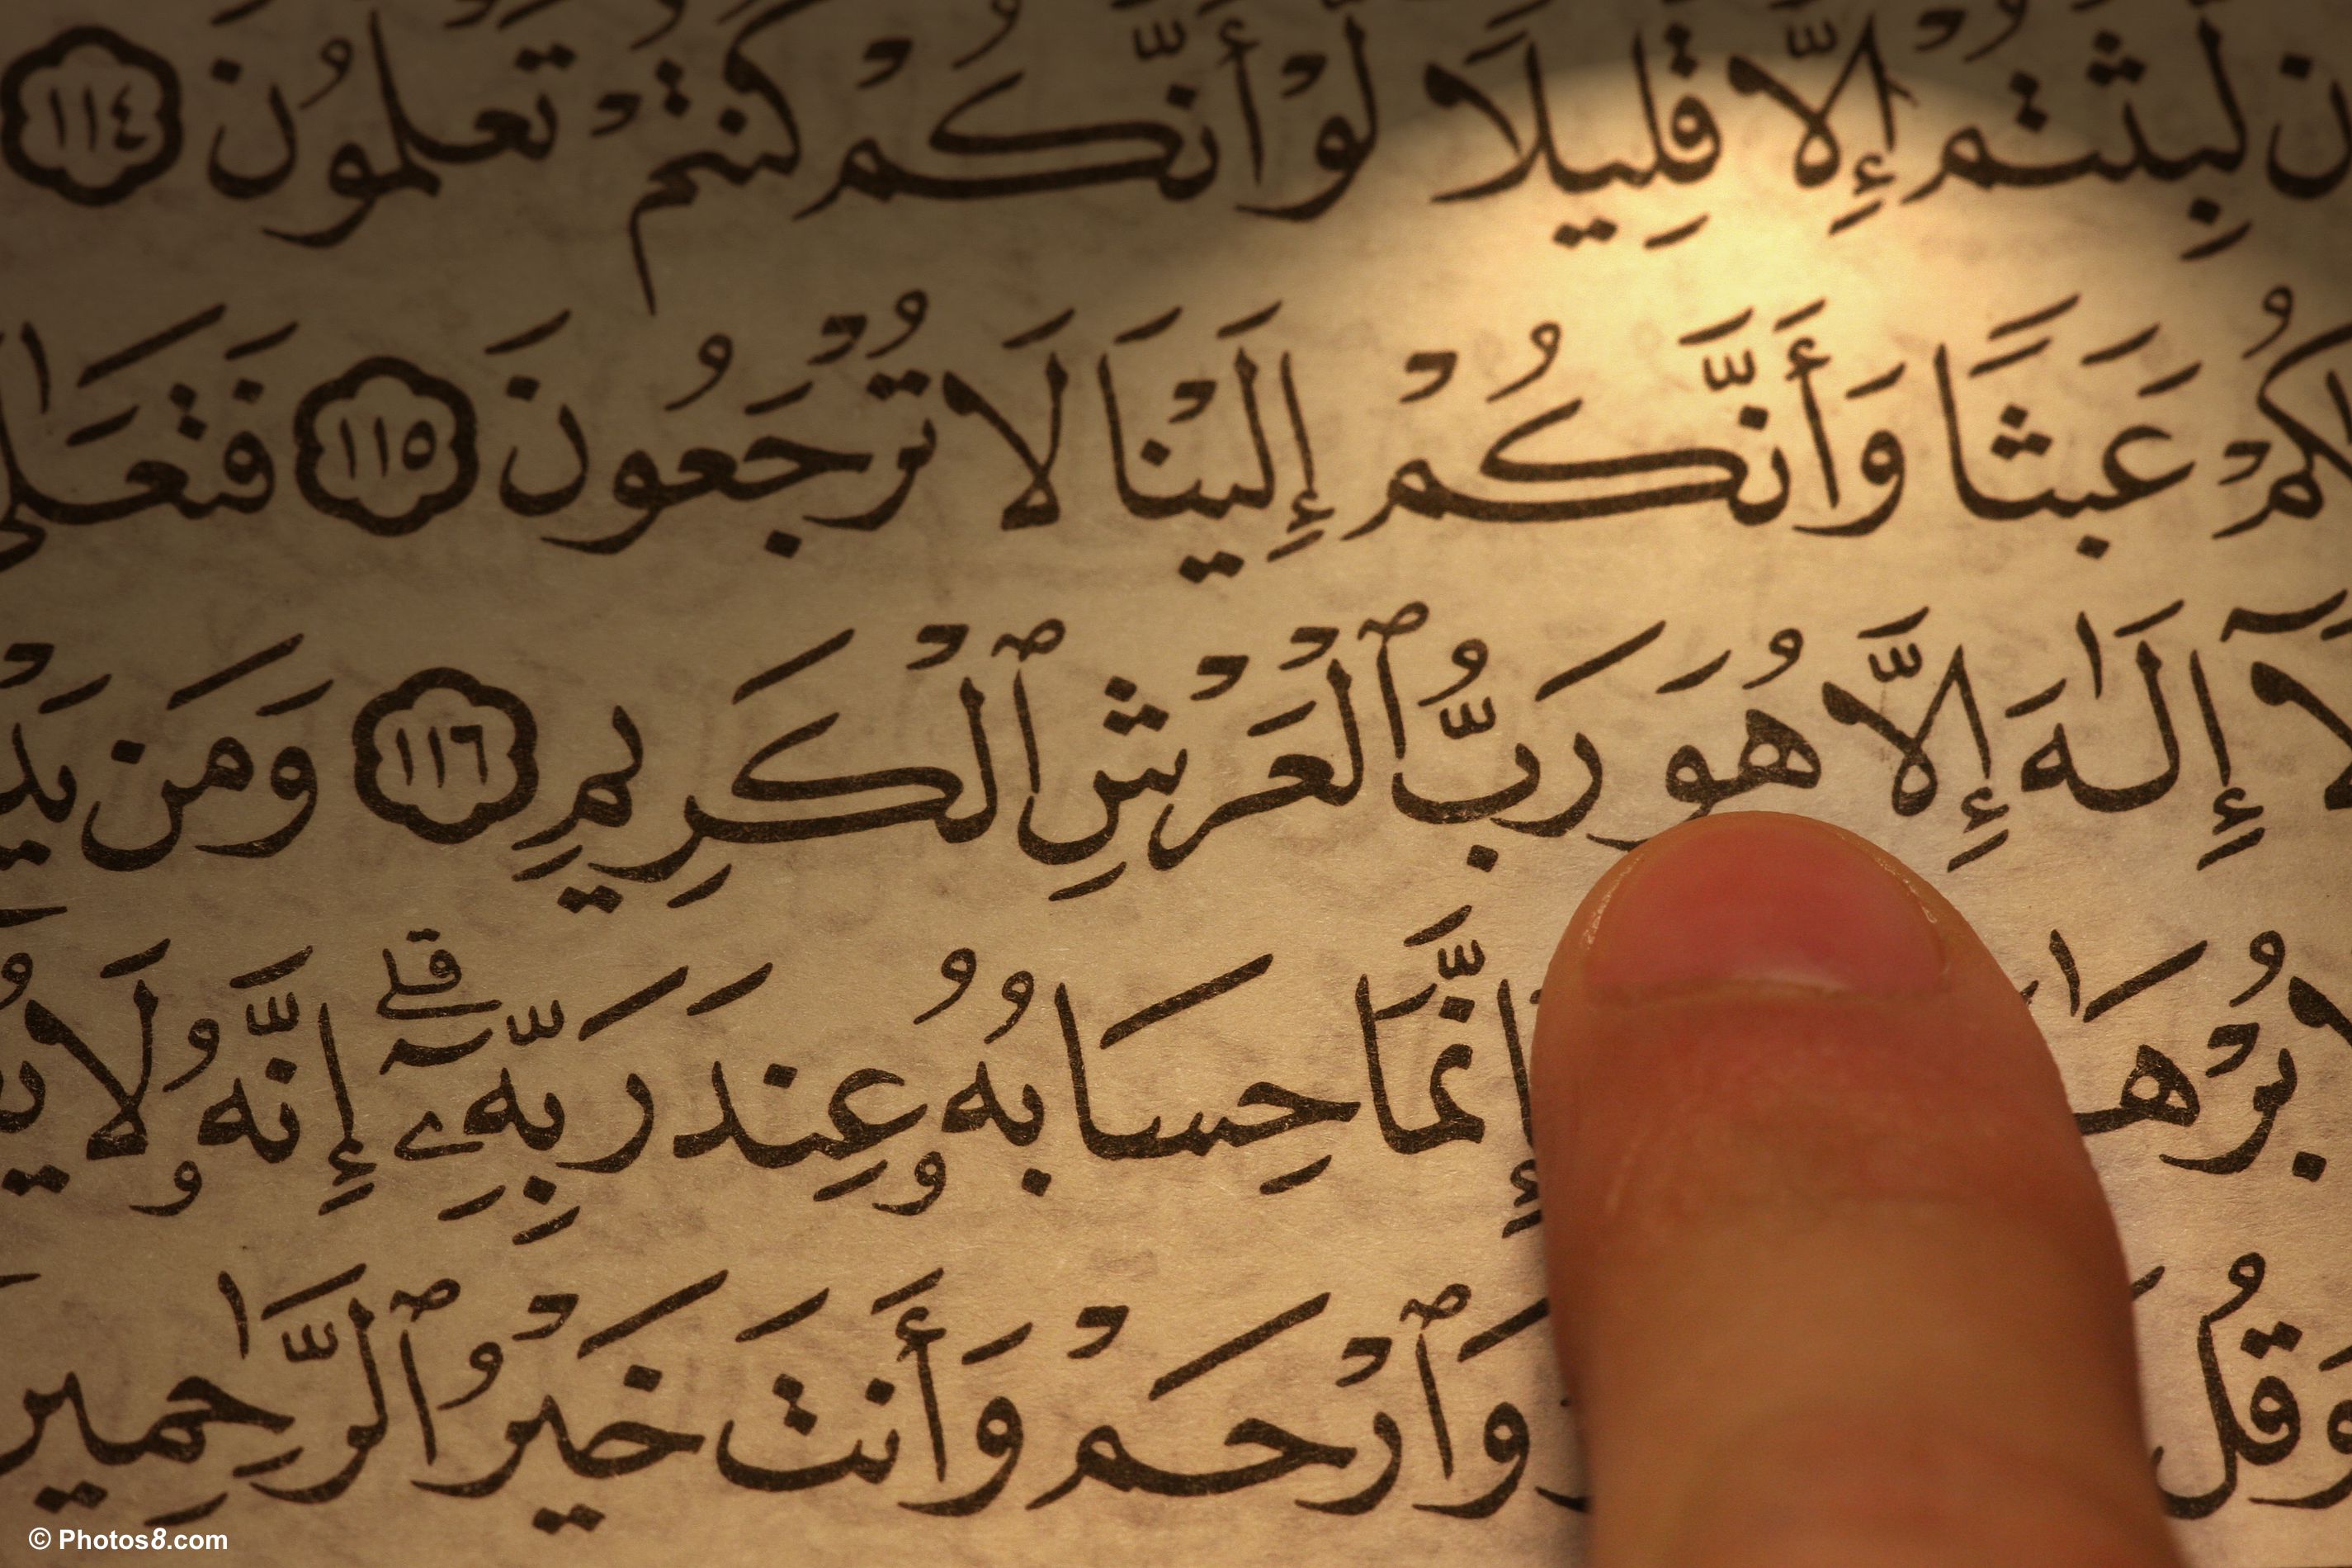 لَّبِثْتُمْ إِلَّا قَلِيلًا لَّوْ أَنَّكُمْ كُنتُمْ تَعْلَمُونَ ١١٤
عَبَثًا وَأَنَّكُمْ إِلَيْنَا لَا تُرْجَعُونَ ١١٥
إِلَٰهَ إِلَّا هُوَ رَبُّ ٱلْعَرْشِ ٱلْكَرِيمِ ١١٦ وَمَن
إِنَّمَا حِسَابُهُۥ عِندَ رَبِّهِۦٓ ۚ إِنَّهُۥ لَا
وَقُل وَٱرْحَمْ وَأَنتَ خَيْرُ ٱلرَّٰحِمِي
© Photos8.com